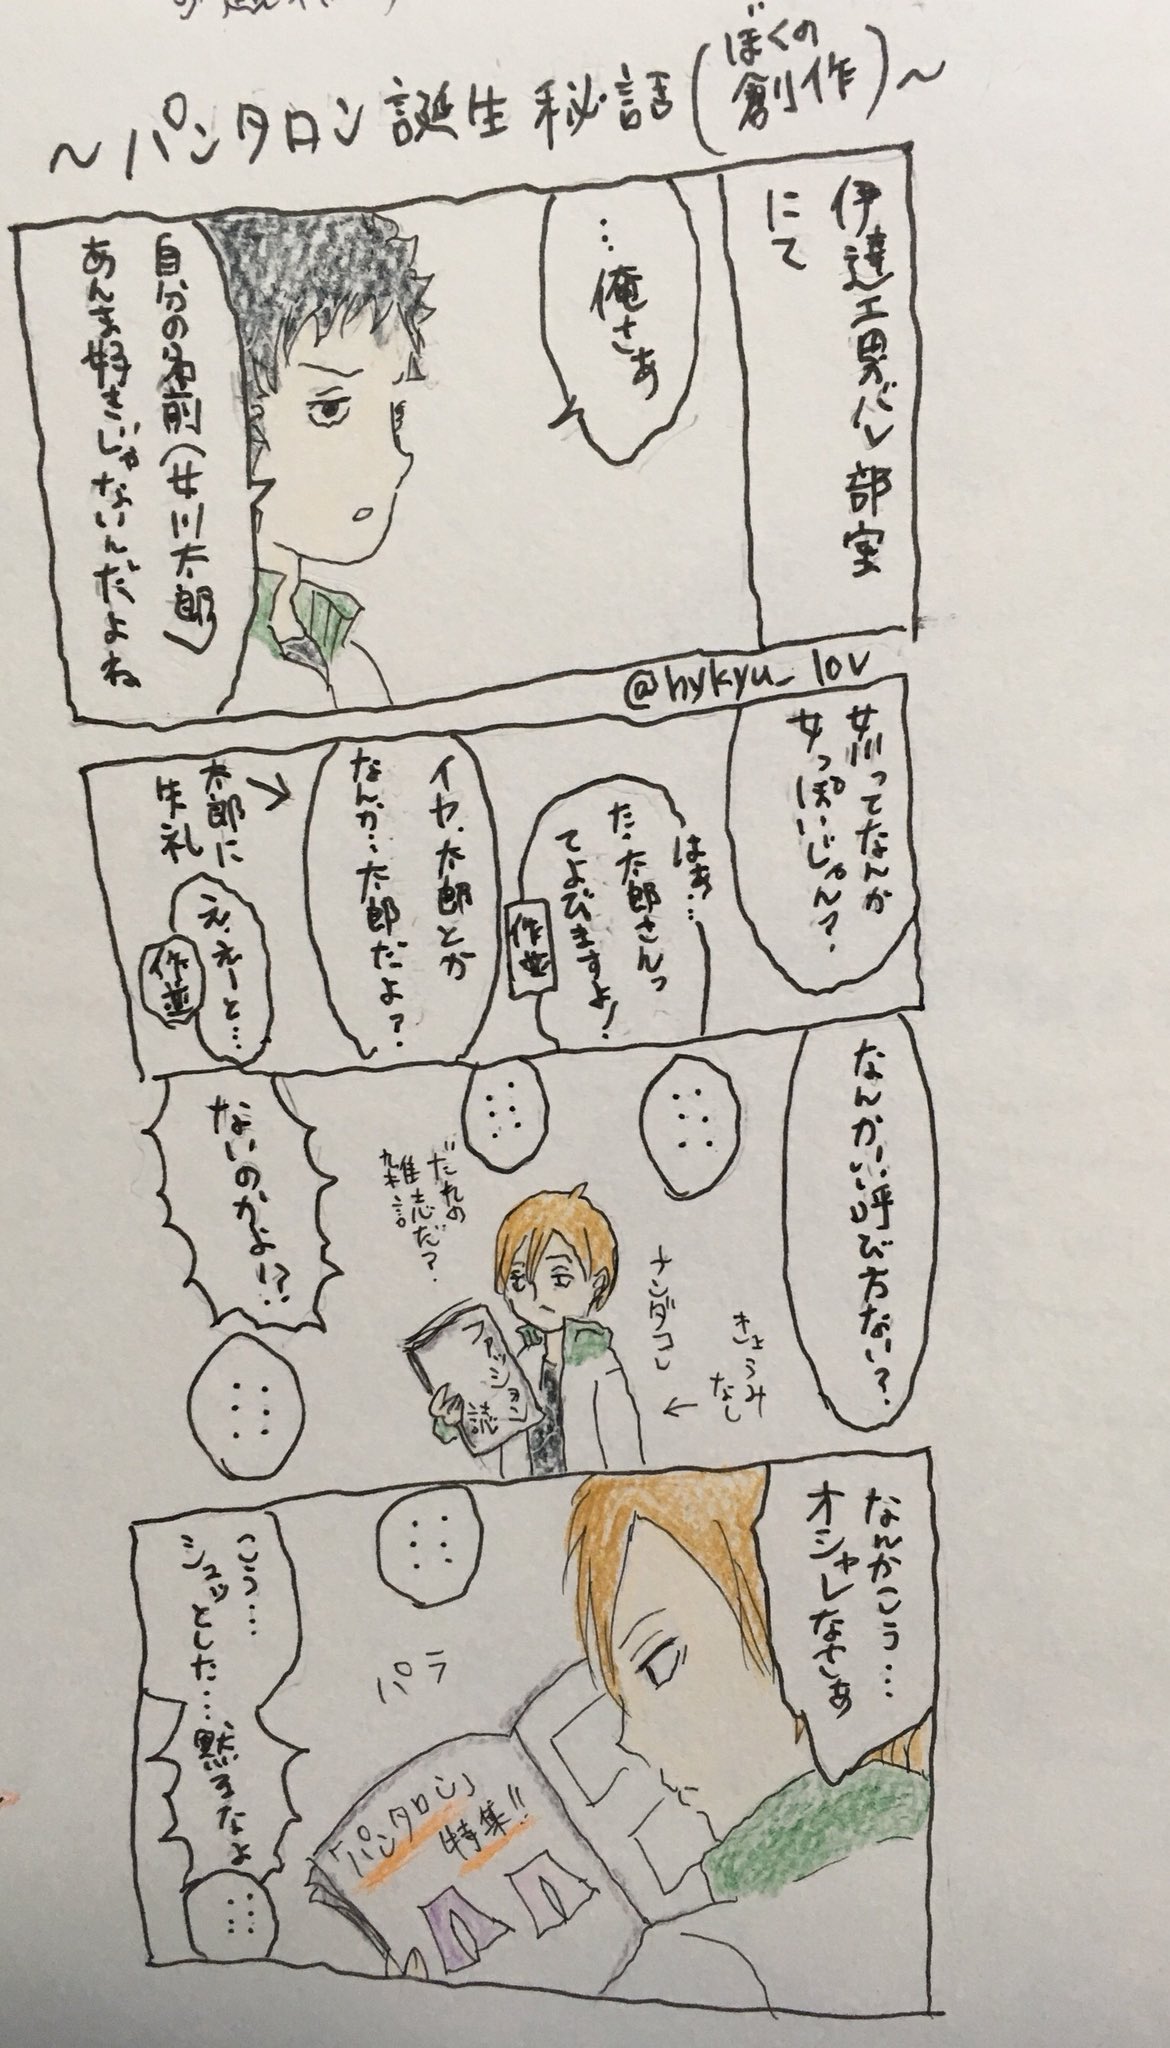 ～パンタロン誕生秘話(ぼくの
創作)～
伊達工男バレ部室
にて
…俺さあ
自分の名前(女川太郎)
あんま好きじゃないんだよね
@hykyu_lov
女川ってなんか
女っぽいじゃん？
はあ…
た、太郎さんっ
てよびますよ！
作並
イヤ、太郎とか
なんか…太郎だよ？
太郎に
失礼
え、えーと…
作並
なんかいい呼び方ない？
……
……
きょうみ
なし
ナンダコレ
だれの
雑誌だ？
ファッション
誌
ないのかよ!?
……
なんかこう…
オシャレなさあ
……
パラ
「パンタロン」
特集!!
こう…
シュッとした…黙るなよ
……